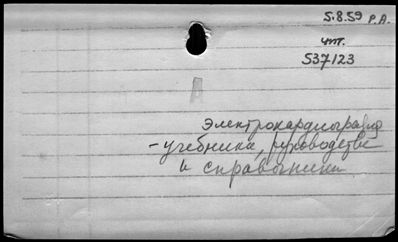 5.8.59 Р.А.
чт.
537/23
Электрокардиография
- учебники, руководства
и справочники